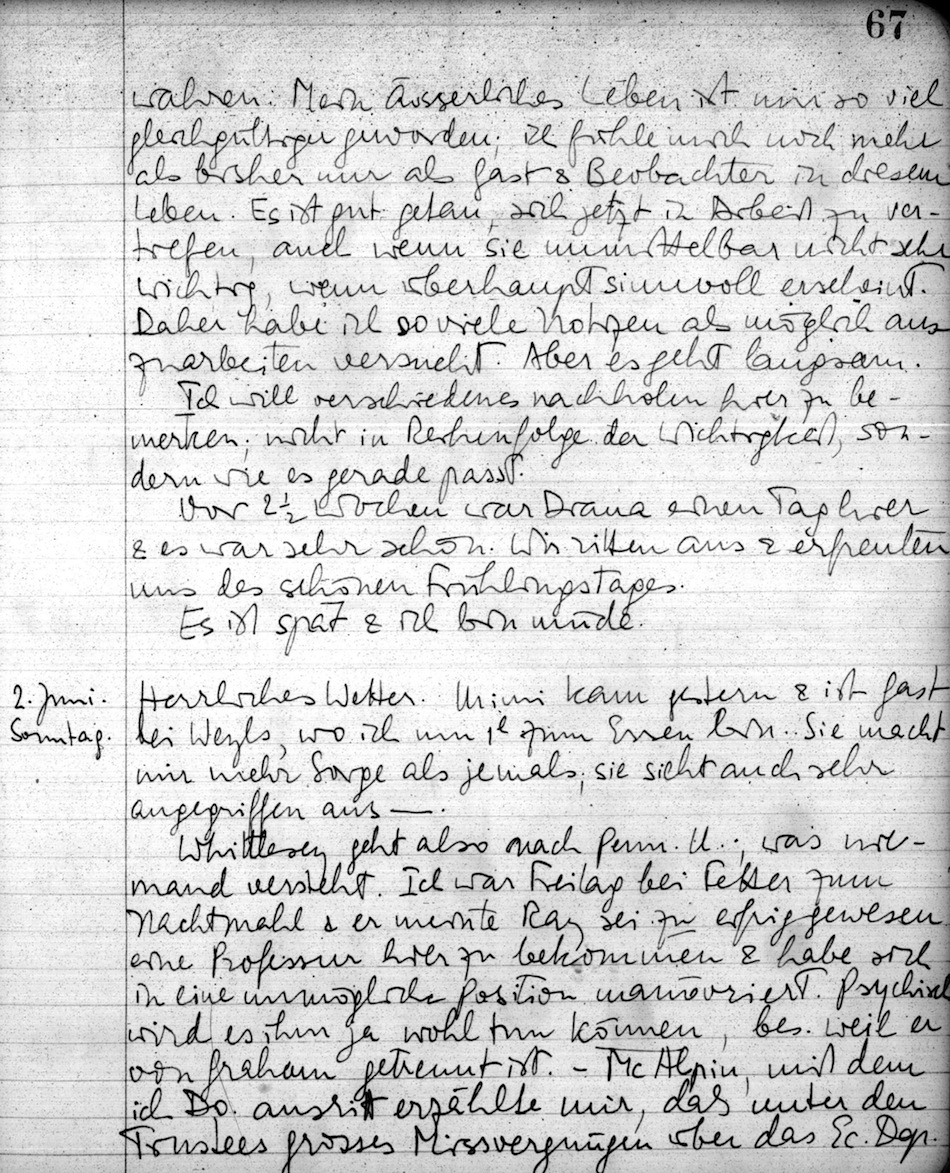 67
wahren. Mein äusserliches Leben ist mir so viel
gleichgültiger geworden; ich fühle mich noch mehr
als bisher nur als Gast & Beobachter in diesem
Leben. Es ist gut getan, sich jetzt in Arbeit zu ver-
tiefen, auch wenn sie unmittelbar nicht sehr
wichtig, wenn überhaupt sinnvoll erscheint.
Daher habe ich so viele Notizen als möglich aus
zuarbeiten versucht. Aber es geht langsam.
Ich will verschiedenes nachholen hier zu be-
merken; nicht in Reihenfolge der Wichtigkeit, son-
dern wie es gerade passt.
Vor 2½ Wochen war Drana einen Tag hier
& es war sehr schön. Wir ritten aus & erfreuten
uns des schönen Frühlingstages.
Es ist spät & ich bin müde.
2. Juni. Herrliches Wetter. Mimi kam gestern & ist Gast
Sonntag. bei Weyls, wo ich um 1h zum Essen bin. Sie macht
mir mehr Sorge als jemals, sie sieht auch sehr
angegriffen aus —.
Whittlesey geht also nach Penn. U., was nie-
mand versteht. Ich war Freitag bei Fetter zum
Nachtmahl & er meinte Ray sei zu eifrig gewesen
eine Professur hier zu bekommen & habe sich
in eine unmögliche Position manövriert. Psychisch
wird es ihm ja wohl tun können, bes. weil er
von Graham getrennt ist. – McAlpin, mit dem
ich Do. ausritt erzählte mir, das unter den
Trustees grosses Missvergnügen über das Ec. Dep.